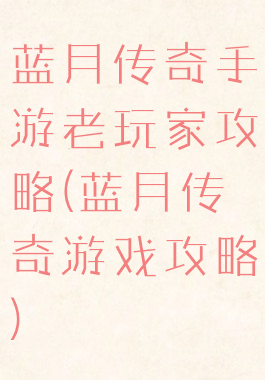 蓝月传奇手
游老玩家攻
略(蓝月传
奇游戏攻略
)